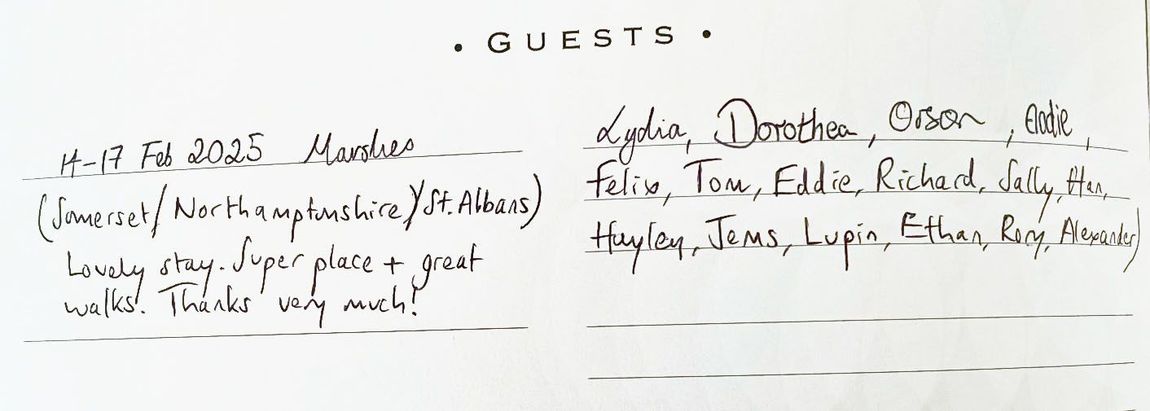 • GUESTS •
14-17 Feb 2025 Marshes
(Somerset/Northamptonshire)/St. Albans)
Lovely stay. Super place + great
walks! Thanks very much!
Lydia, Dorothea, Orson, Elodie,
Felix, Tom, Eddie, Richard, Sally, Han,
Hayley, Jems, Lupin, Ethan, Rory, Alexander)